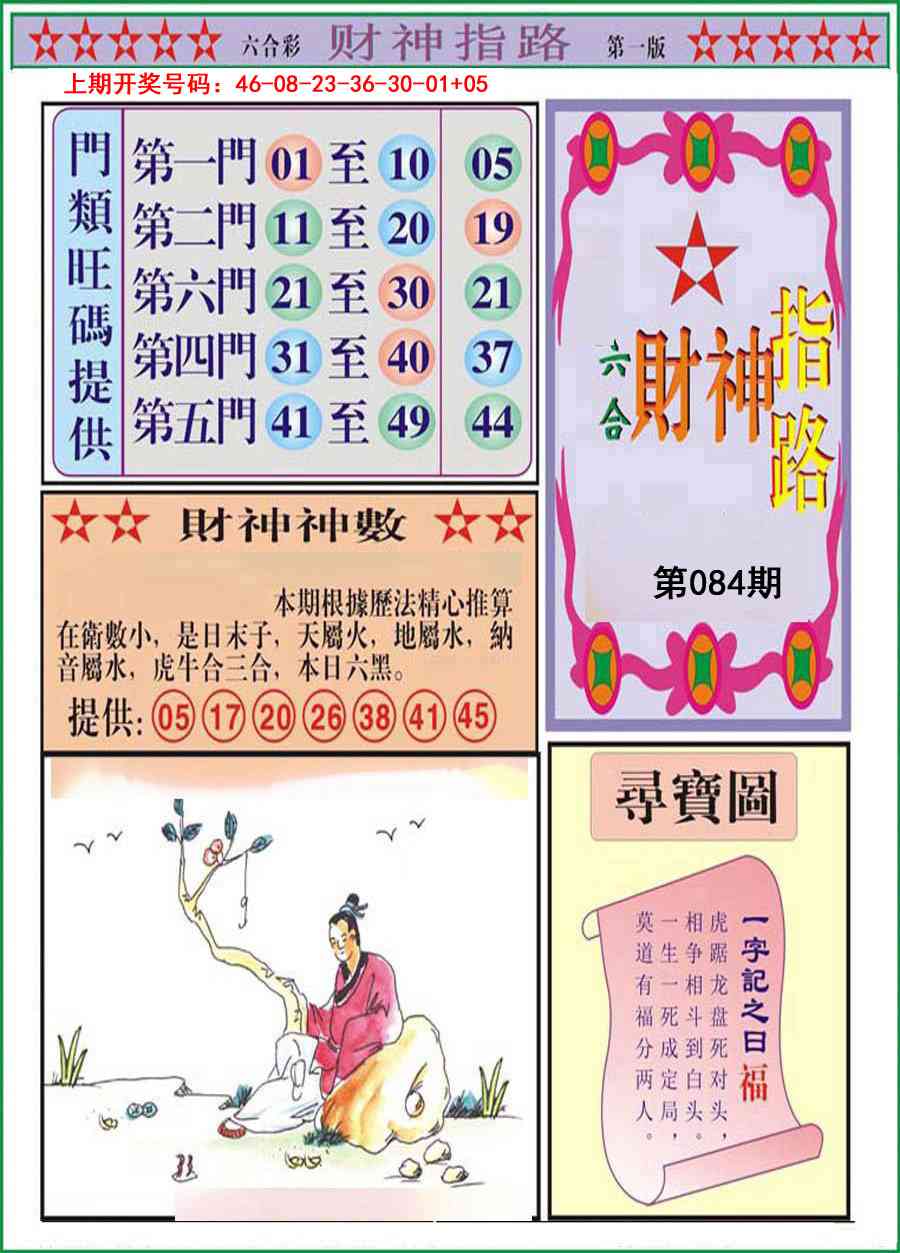 六合彩 财神指路 第一版
上期开奖号码：46-08-23-36-30-01+05
門類旺碼提供
第一門 01 至 10 05
第二門 11 至 20 19
第六門 21 至 30 21
第四門 31 至 40 37
第五門 41 至 49 44
六合
財神
指路
第084期
財神神數
本期根據歷法精心推算
在衛數小，是日末子，天屬火，地屬水，納
音屬水，虎牛合三合，本日六黑。
提供: 05 17 20 26 38 41 45
尋寶圖
一字記之曰 福
虎踞龙盘死对头，
相争相斗到白头。
一生一死成定局，
莫道有福分两人。